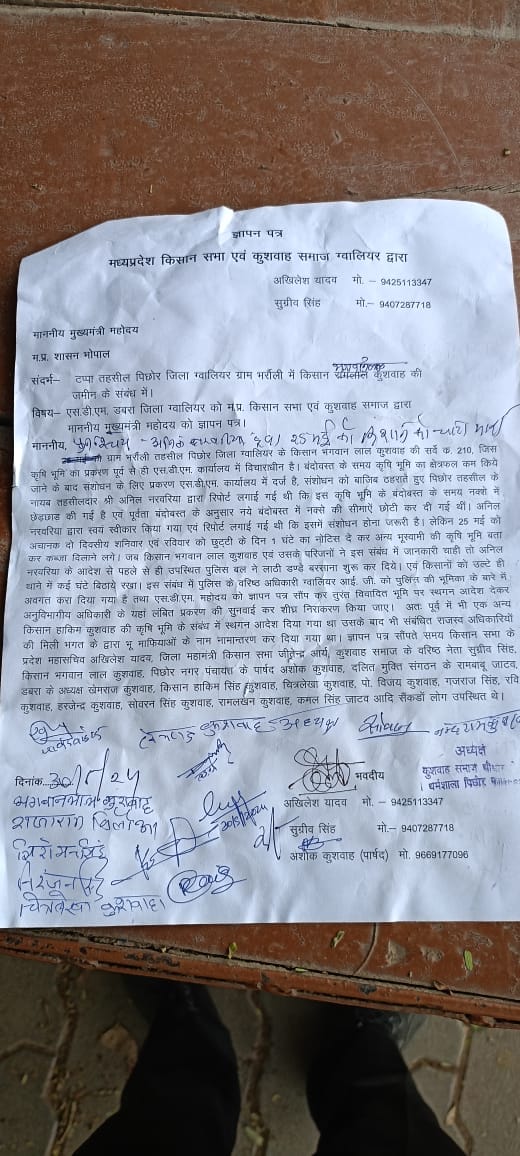 ज्ञापन पत्र
मध्यप्रदेश किसान सभा एवं कुशवाह समाज ग्वालियर द्वारा
अखिलेश यादव मो. – 9425113347
सुग्रीव सिंह मो.– 9407287718
माननीय मुख्यमंत्री महोदय
म.प्र. शासन भोपाल
संदर्भ– टप्पा तहसील पिछोर जिला ग्वालियर ग्राम भर्रौली में किसान कुशवाह की
जमीन के संबंध में।
विषय– एस.डी.एम. डबरा जिला ग्वालियर को म.प्र. किसान सभा एवं कुशवाह समाज द्वारा
माननीय मुख्यमंत्री महोदय को ज्ञापन पत्र।
माननीय, 25 मई को
ग्राम भर्रौली तहसील पिछोर जिला ग्वालियर के किसान भगवान लाल कुशवाह की सर्वे क. 210, जिस
कृषि भूमि का प्रकरण पूर्व से ही एस.डी.एम. कार्यालय में विचाराधीन है। बंदोवस्त के समय कृषि भूमि का क्षेत्रफल कम किये
जाने के बाद संशोधन के लिए प्रकरण एस.डी.एम. कार्यालय में दर्ज है, संशोधन को बाजिब ठहराते हुए पिछोर तहसील के
नायब तहसीलदार श्री अनिल नरवरिया द्वारा रिपोर्ट लगाई गई थी कि इस कृषि भूमि के बंदोबस्त के समय नक्शे में
छेड़छाड की गई है एवं पूर्वता बंदोबस्त के अनुसार नये बंदोबस्त में नक्से की सीमाऐं छोटी कर दी गई थीं। अनिल
नरवरिया द्वारा स्वयं स्वीकार किया गया एवं रिपोर्ट लगाई गई थी कि इसमें संशोधन होना जरूरी है। लेकिन 25 मई को
अचानक दो दिवसीय शनिवार एवं रविवार को छुट्टी के दिन 1 घंटे का नोटिस दे कर अन्य भूस्वामी की कृषि भूमि बता
कर कब्जा दिलाने लगे। जब किसान भगवान लाल कुशवाह एवं उसके परिजनों ने इस संबंध में जानकारी चाही तो अनिल
नरवरिया के आदेश से पहले से ही उपस्थित पुलिस बल ने लाठी डण्डे बरसाना शुरू कर दिये। एवं किसानों को उल्टे ही
थाने में कई घंटे बिठाये रखा। इस संबंध में पुलिस के वरिष्ठ अधिकारी ग्वालियर आई. जी. को पुलिस की भूमिका के बारे में
अवगत करा दिया गया है तथा एस.डी.एम. महोदय को ज्ञापन पत्र सौंप कर तुरंत विवादित भूमि पर स्थगन आदेश देकर
अनुविभागीय अधिकारी के यहां लंबित प्रकरण की सुनवाई कर शीघ्र निराकरण किया जाए। अतः पूर्व में भी एक अन्य
किसान हाकिम कुशवाह की कृषि भूमि के संबंध में स्थगन आदेश दिया गया था उसके बाद भी संबंधित राजस्व अधिकारियों
की मिली भगत के द्वारा भू माफियाओं के नाम नामान्तरण कर दिया गया था। ज्ञापन पत्र सौंपते समय किसान सभा के
प्रदेश महासचिव अखिलेश यादव, जिला महामंत्री किसान सभा जीतेन्द्र आर्य, कुशवाह समाज के वरिष्ठ नेता सुग्रीव सिंह,
किसान भगवान लाल कुशवाह, पिछोर नगर पंचायत के पार्षद अशोक कुशवाह, दलित मुक्ति संगठन के रामबाबू जाटव,
डबरा के अध्यक्ष खेमराज कुशवाह, किसान हाकिम सिंह कुशवाह, चित्रलेखा कुशवाह, पो. विजय कुशवाह, गजराज सिंह, रवि
कुशवाह, हरजेन्द्र कुशवाह, सोवरन सिंह कुशवाह, रामलखन कुशवाह, कमल सिंह जाटव आदि सैंकडों लोग उपस्थित थे।
खेमराज कुशवाह अध्यक्ष
अध्यक्ष
कुशवाह समाज
धर्मशाला पिछोर
दिनांक 30/5/24
भवदीय
भगवानलाल कुशवाह
अखिलेश यादव मो. – 9425113347
30/5/2024
सुग्रीव सिंह मो.– 9407287718
अशोक कुशवाह (पार्षद) मो. 9669177096
सिरोमनसिंह
निरंजनसिंह
चित्रलेखा कुशवाह